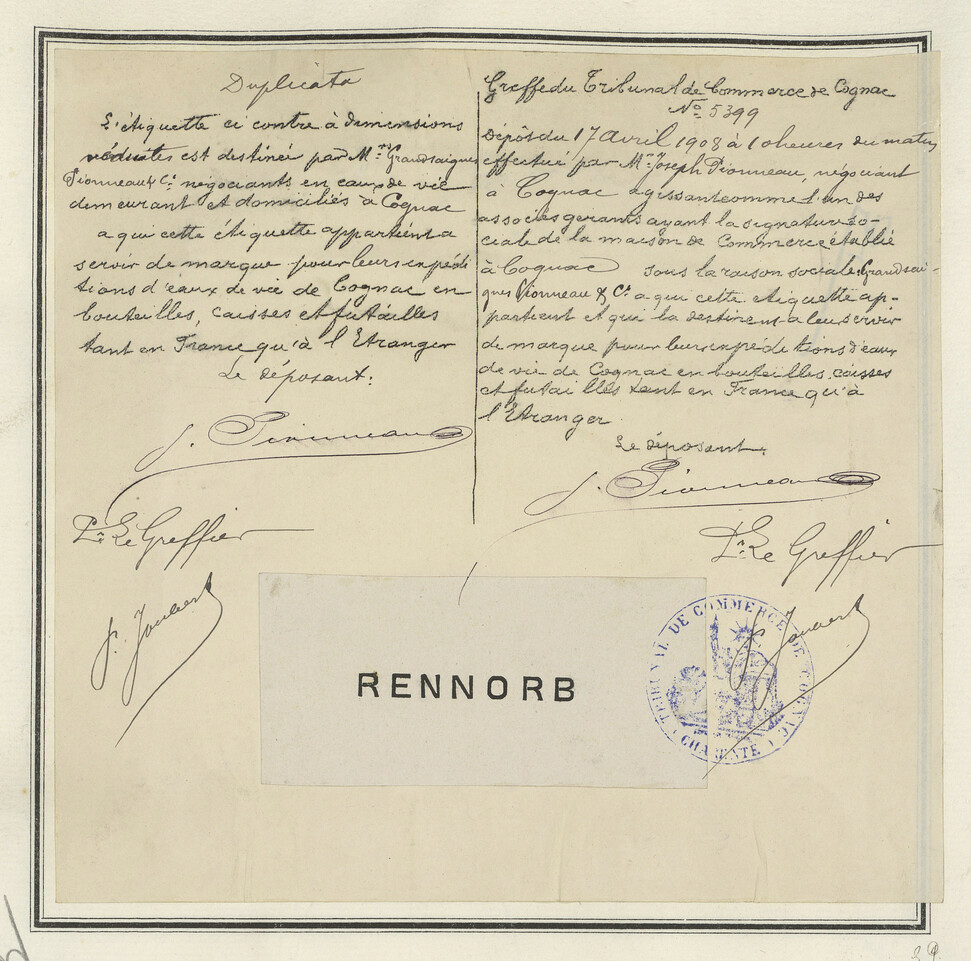 Duplicata
L'étiquette ci contre à dimensions
réduites est destinée par Mrs Grandsaignes
Pionneau & Cie négociants en eaux de vie
demeurant et domiciliés à Cognac
a qui cette étiquette appartient a
servir de marque pour leurs expédi
tions d'eaux de vie de Cognac en
bouteilles, caisses et futailles
tant en France qu'à l'Etranger
Le déposant:
J. Pionneau
Pr Le Greffier
J. Joubert
Greffe du Tribunal de Commerce de Cognac
No 5399
Dépôt du 17 Avril 1908 à 10 heures du matin
effectué par Mr Joseph Pionneau, négociant
à Cognac agissant comme l'un des
associés gérants ayant la signature so-
ciale de la maison de Commerce établie
à Cognac sous la raison sociale Grandsai-
gnes Pionneau & Cie a qui cette étiquette ap-
partient et qui la destinent a leur servir
de marque pour leurs expéditions d'eaux
de vie de Cognac en bouteilles, caisses
et futailles tant en France qu'à
l'Etranger.
Le déposant.
J. Pionneau
Pr Le Greffier
J. Joubert
RENNORB
TRIBUNAL DE COMMERCE DE COGNAC
CHARENTE